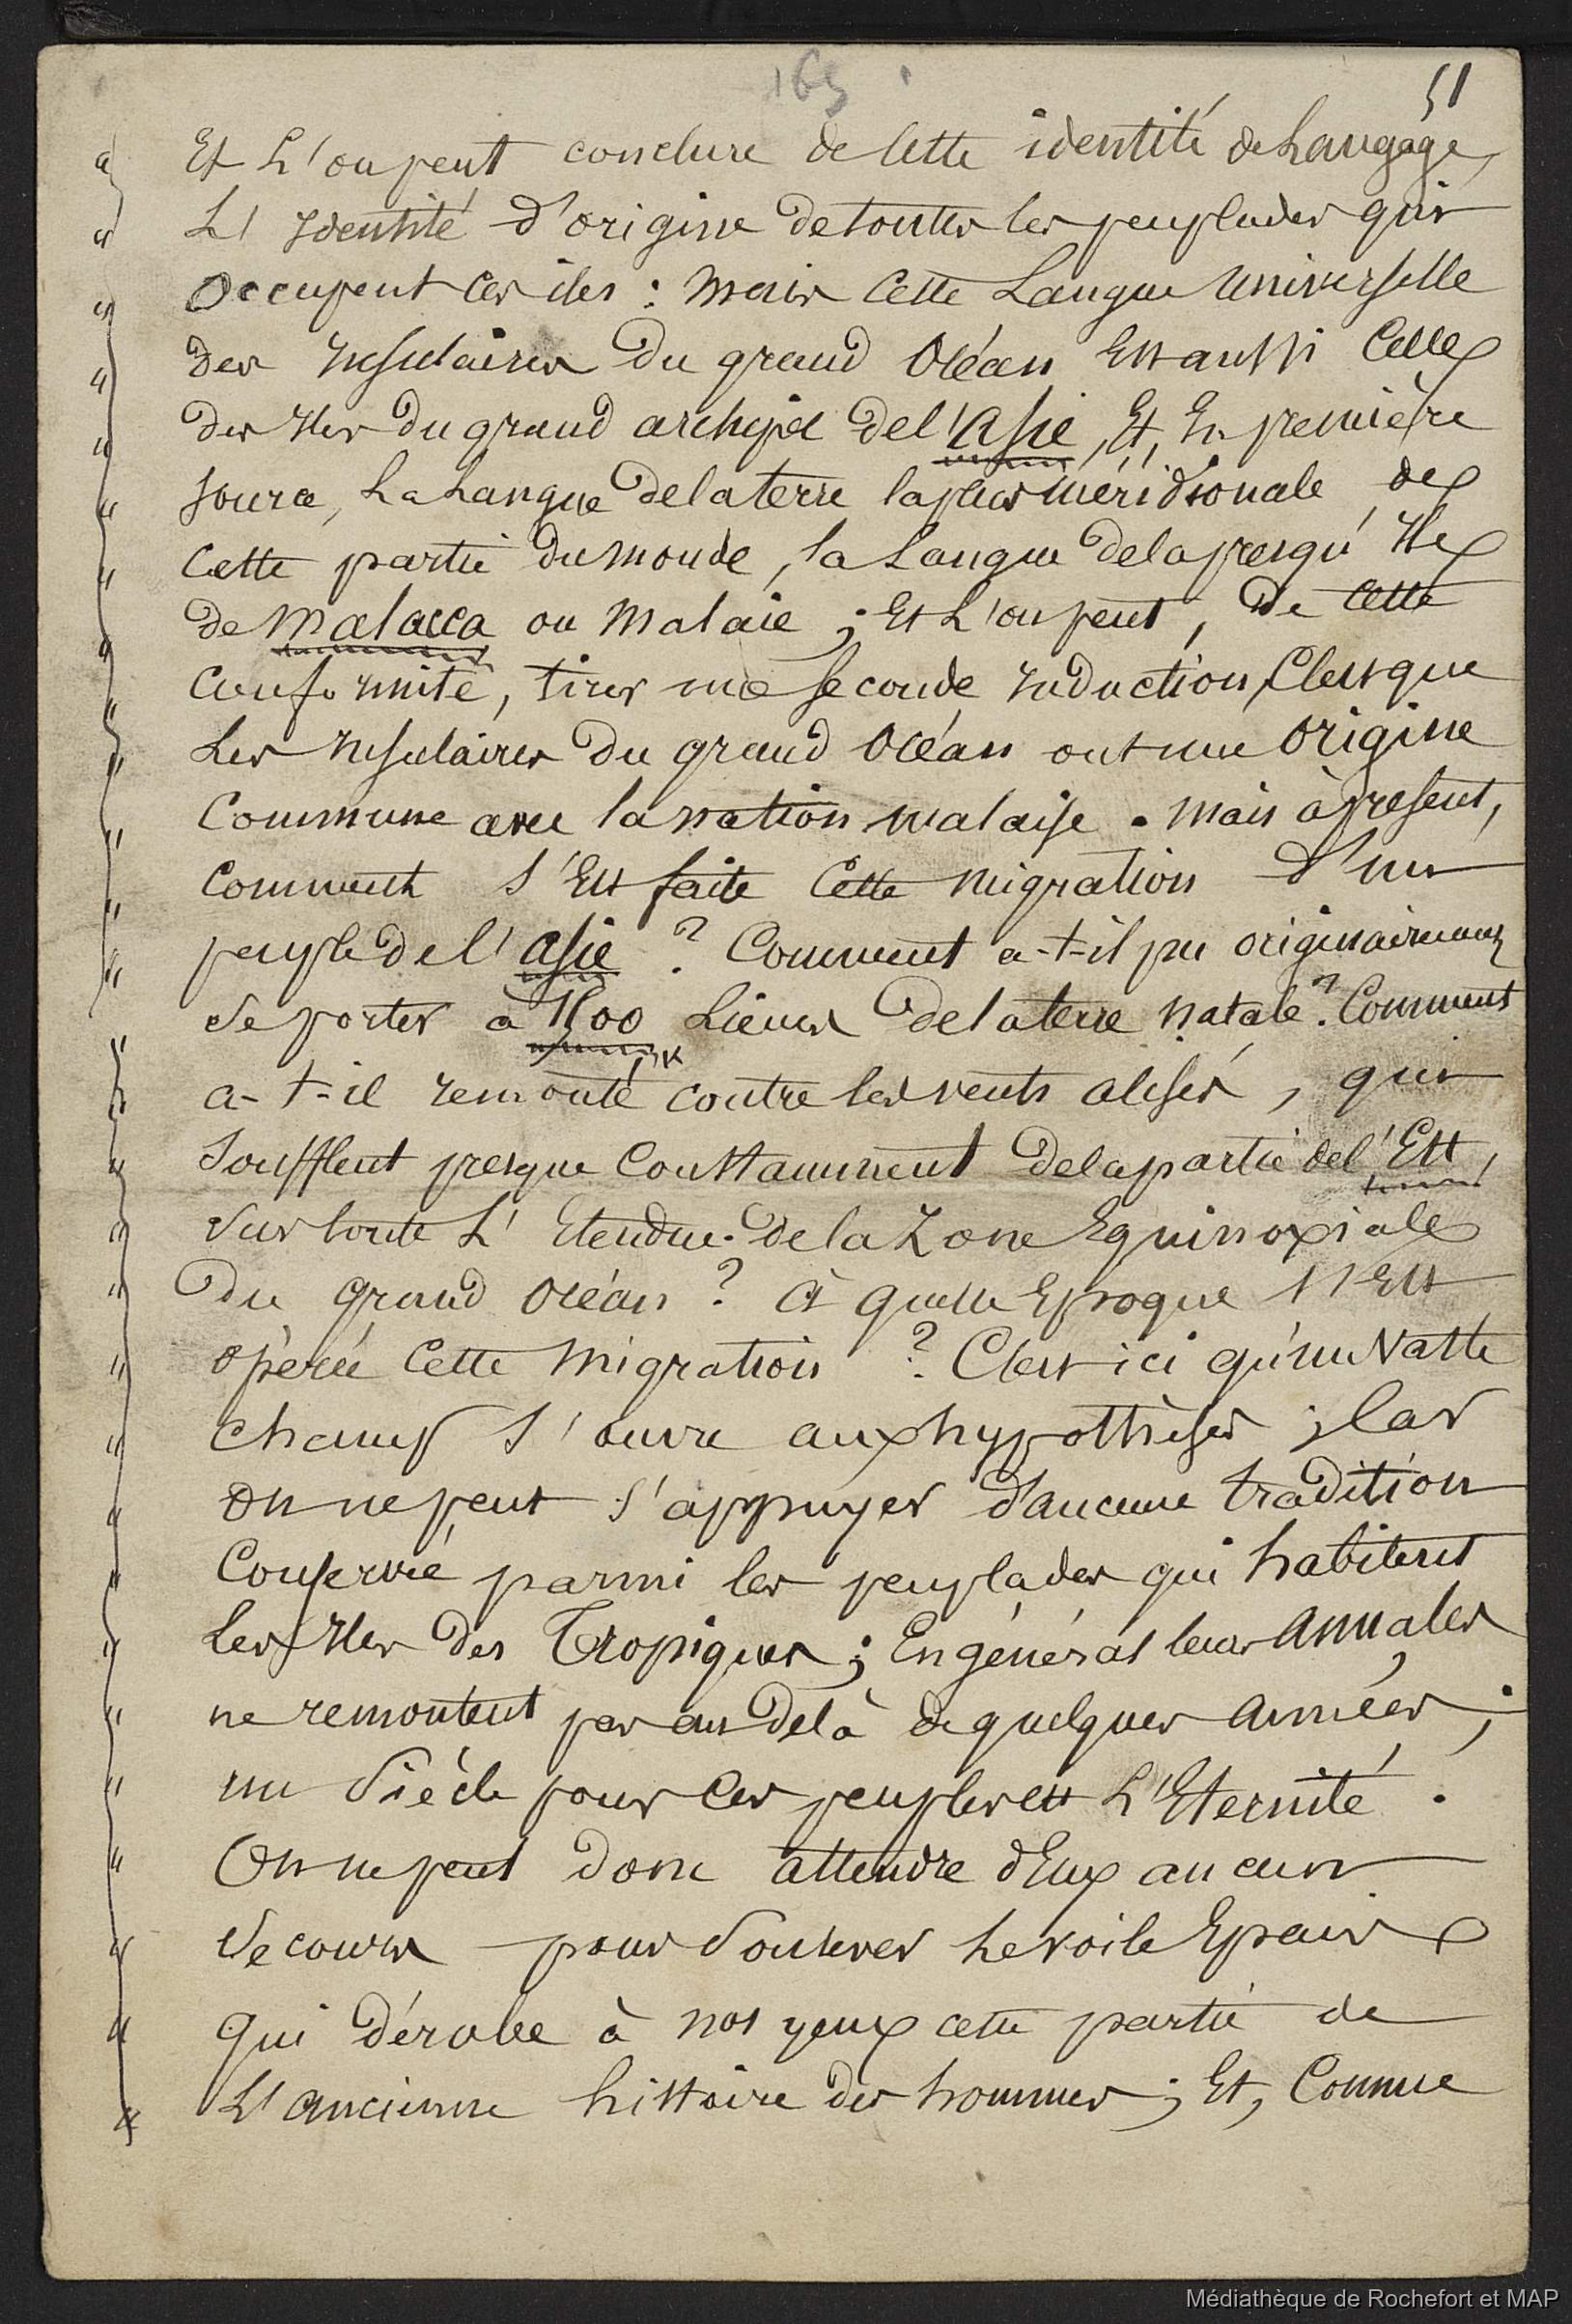 165
51
Et L'on peut conclure de Cette identité de Langage,
L'Identité d'origine de toutes les peuplades qui
Occupent Ces iles : Mais Cette Langue universelle
des Insulaires Du grand Océan Est aussi Celle
des Iles Du grand archipel De l'Asie, Et, En première
source, La Langue de la terre la plus méridionale de
Cette partie du monde, la Langue de la presqu'Ile
de Malacca ou Malaie ; Et L'on peut, de Cette
Conformité, tirer une seconde induction, C'est que
Les Insulaires Du grand Océan ont une Origine
Commune avec la nation malaise. Mais à présent,
Comment s'Est faite Cette migration d'un
peuple de l'Asie ? Comment a-t-il pu originairement
se porter à 1500 Lieues de la terre natale ? Comment
a-t-il remonté contre les vents alisés, qui
Soufflent presque Constamment de la partie de l'Est,
sur toute L'Etendue de la Zone Equinoxiale
Du grand Océan ? à quelle Epoque s'est
opérée Cette Migration ? C'est ici qu'un Vaste
champ s'ouvre aux hypothèses ; Car
On ne peut s'appuyer d'aucune tradition
Conservée parmi les peuplades qui habitent
Les Iles des Tropiques ; En général leurs Annales
ne remontent pas au delà de quelques années ;
un siècle pour Ces peuples est L'Eternité.
On ne peut donc attendre d'Eux aucun
secours pour soulever Le voile Epais
qui dérobe à nos yeux cette partie de
L'ancienne histoire des hommes ; Et, Comme
Médiathèque de Rochefort et MAP